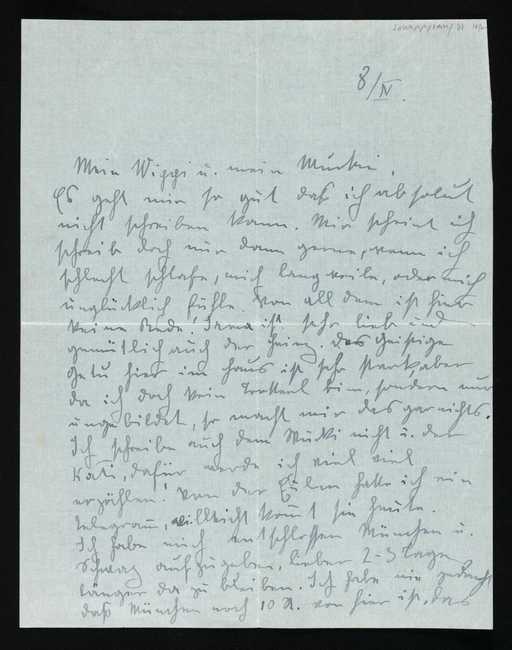 8/IV.
Mein Wippi u. meine Mucki,
Es geht mir so gut daß ich absolut
nicht schreiben kann. Mir scheint ich
schreib doch nur dann gerne, wenn ich
schlecht schlafe, mich langweile, oder mich
unglücklich fühle. Von all dem ist hier
keine Rede! Irena ist sehr lieb und
gemütlich auch der Heinz. Das Geistige
Getu hier im Haus ist sehr stark, aber
da ich doch kein Trotterl bin, sondern nur
ungebildet, so macht mir das gar nichts.
Ich schreibe auch dem Mucki nicht u. der
Kati, dafür werde ich viel viel
erzählen! Von der hatte ich ein
Telegram, villeicht komt sie heute.
Ich habe mich entschlossen München u.
Schwaz aufzugeben, lieber 2-3 Tage
länger da zu bleiben. Ich habe nie gedacht
daß München noch 10 St. von hier ist, das